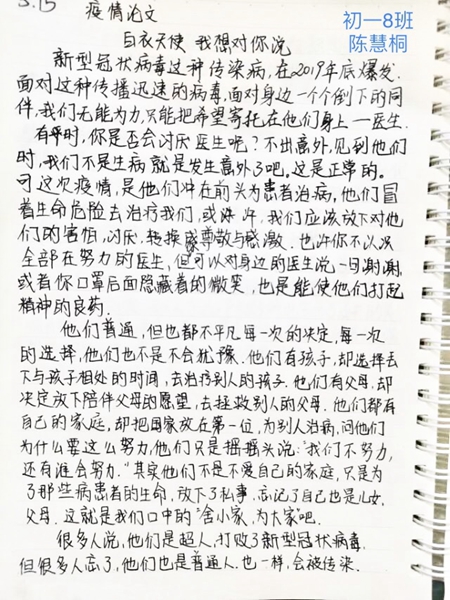 3.15 疫情论文
初一8班
陈慧桐
白衣天使 我想对你说
新型冠状病毒这种传染病,在2019年底爆发.
面对这种传播迅速的病毒,面对身边一个个倒下的同
伴,我们无能为力,只能把希望寄托在他们身上—医生.
有时,你是否会讨厌医生呢?不出意外,见到他们
时,我们不是生病就是发生意外了吧。这是正常的。
可这次疫情,是他们冲在前头为患者治病,他们冒
着生命危险去治疗我们,或许,我们应该放下对他
们的害怕,讨厌,转换成尊敬与感激.也许你不认识
全部在努力的医生,但可以对身边的医生说一句谢谢,
或者你口罩后面隐藏着的微笑,也是能使他们打起
精神的良药.
他们普通,但也都不平凡.每一次的决定,每一次
的选择,他们也不是不会犹豫.他们有孩子,却选择丢
下与孩子相处的时间,去治疗别人的孩子.他们有父母,却
决定放下陪伴父母的愿望,去拯救别人的父母.他们都有
自己的家庭,却把国家放在第一位,为别人治病,问他们
为什么要这么努力,他们只是摇摇头说:"我们不努力,
还有谁会努力."其实他们不是不爱自己的家庭,只是为
了那些病患者的生命,放下了私事,忘记了自己也是儿女,
父母.这就是我们口中的"舍小家,为大家"吧.
很多人说,他们是超人,打败了新型冠状病毒.
但很多人忘了,他们也是普通人.也一样,会被传染.